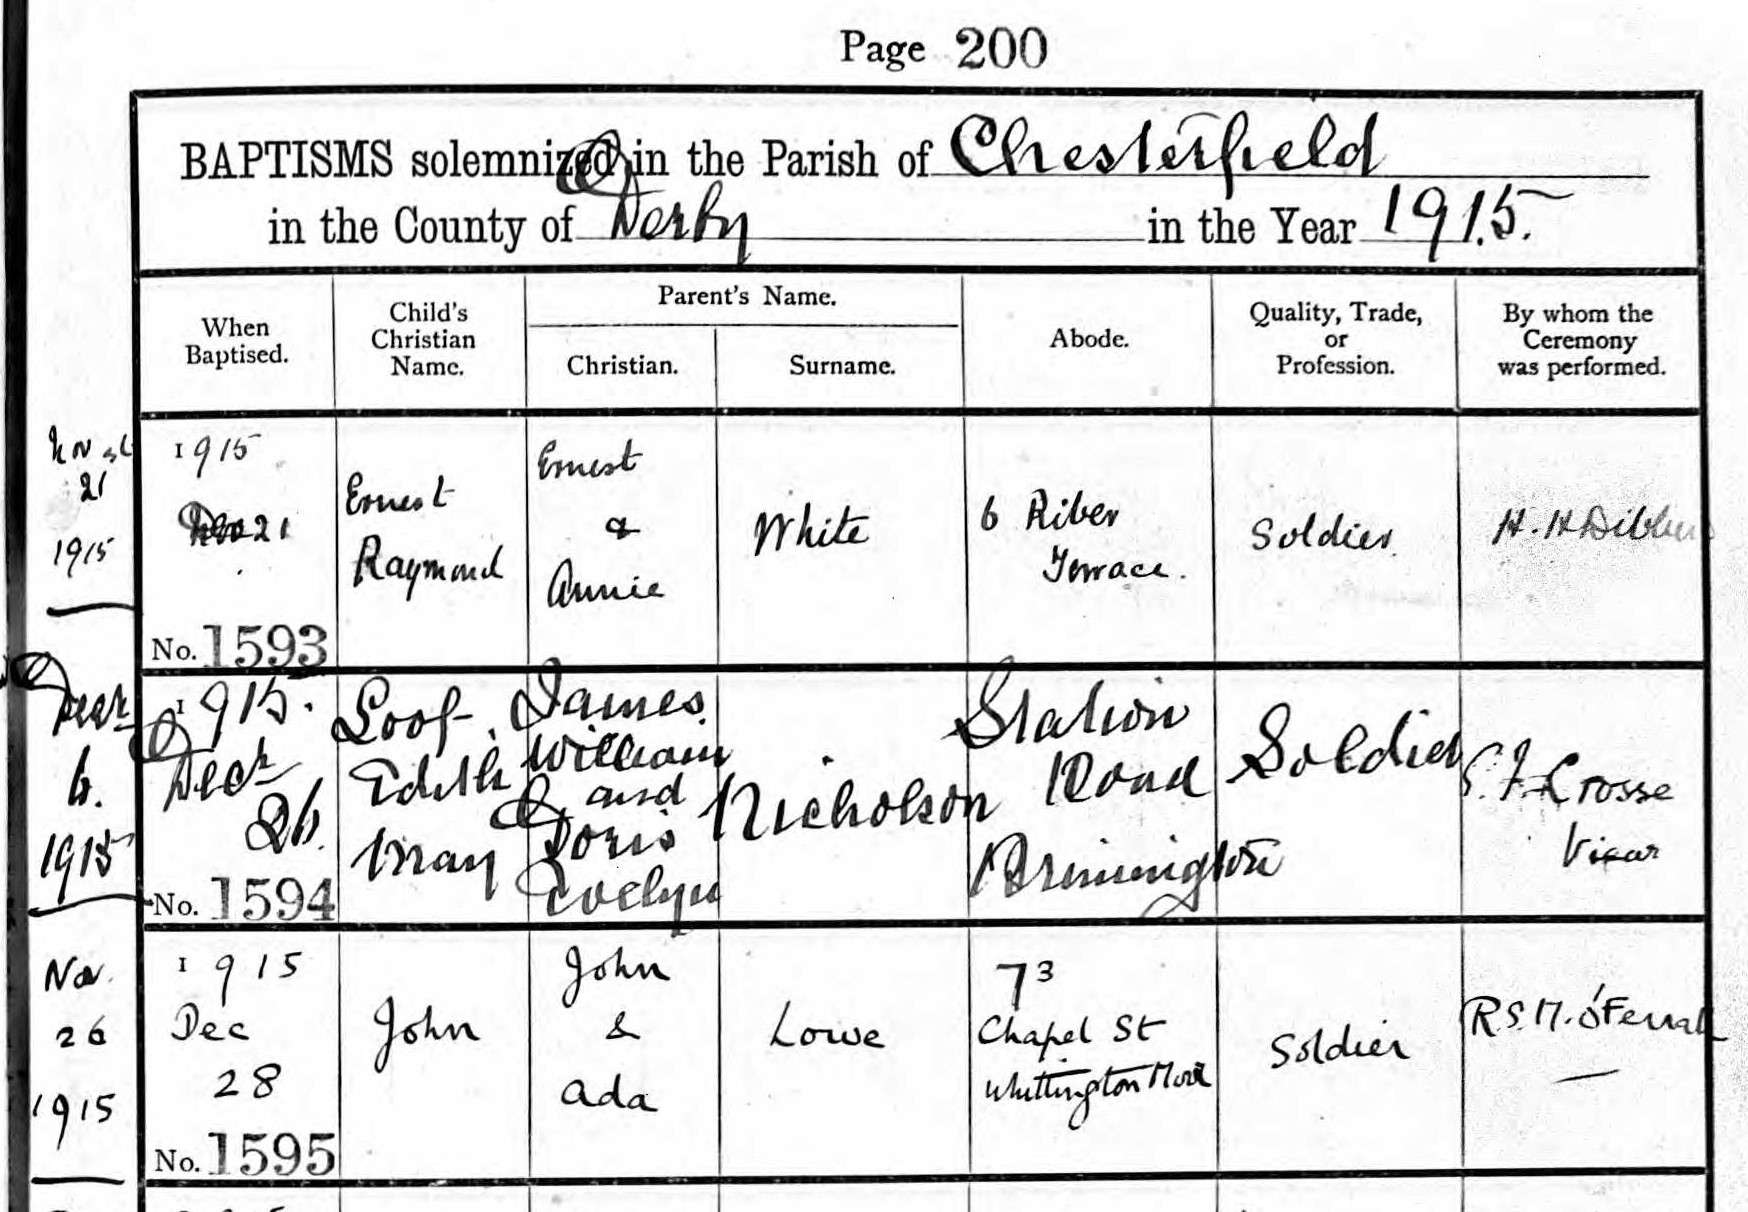 Page 200
BAPTISMS solemnized in the Parish of Chesterfield
in the County of Derby in the Year 1915.
When Baptised.
Child's Christian Name.
Parent's Name.
Christian.
Surname.
Abode.
Quality, Trade, or Profession.
By whom the Ceremony was performed.
21
1915
1915
21
No. 1593
Ernest
Raymond
Ernest
&
Annie
White
6 Riber
Terrace.
Soldier
H. H Dibben
Decr
6.
1915
1915.
Decr
26.
No. 1594
Edith
May
James
William
and
Doris
Evelyn
Nicholson
Station
Road
Brimington
Soldier
Crosse
Vicar
Nov.
26
1915
1915
Dec
28
No. 1595
John
John
&
Ada
Lowe
73
Chapel St
Whittington Moor
Soldier
R S M. O'Ferrall